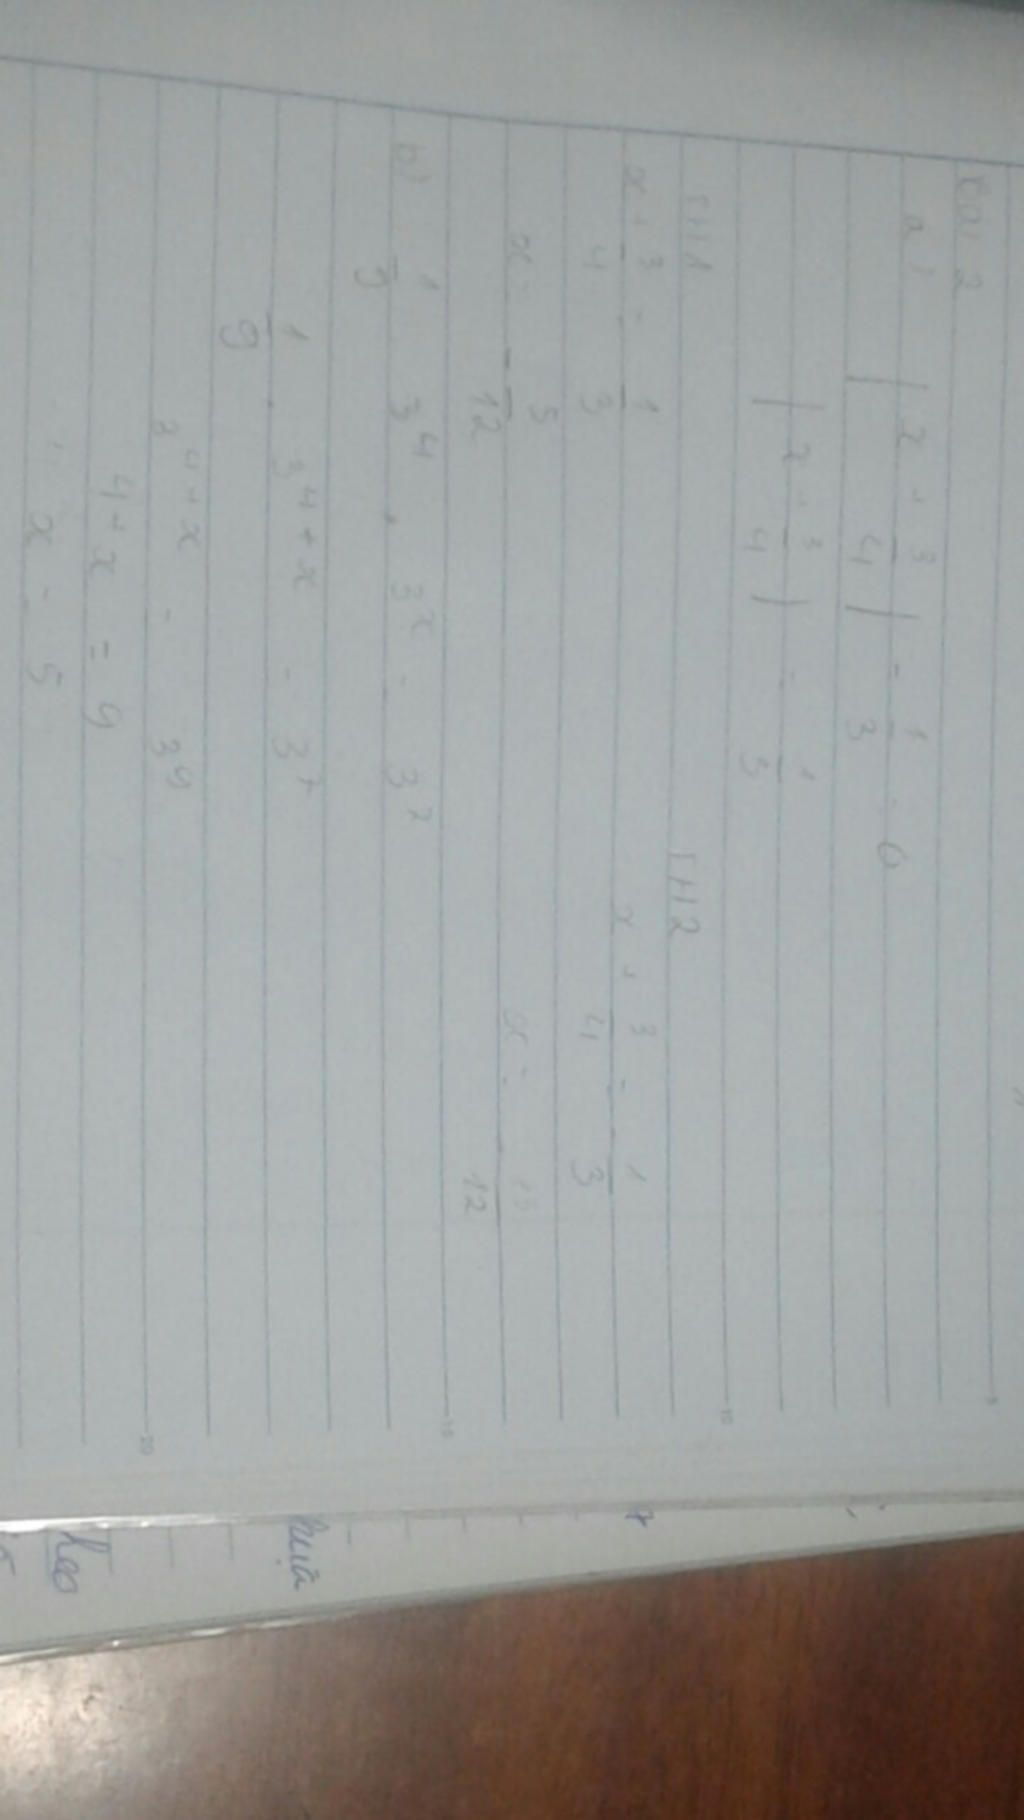 Bài 2
a) | x + 3/4 | - 1/3 = 0
| x + 3/4 | = 1/3
TH1 TH2
x + 3/4 = 1/3 x + 3/4 = - 1/3
x = - 5/12 x = - 13/12
b) 1/9 . 3^4 . 3^x = 3^7
1/9 . 3^4+x = 3^7
3^4+x = 3^9
4 + x = 9
x = 5